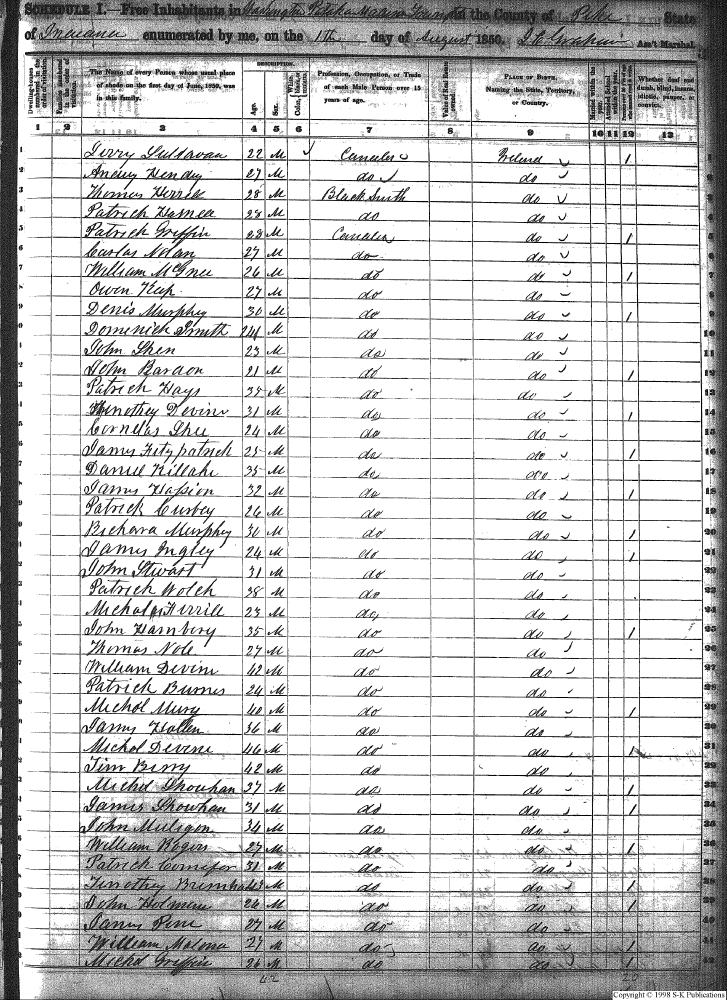 SCHEDULE I.—Free Inhabitants in Washington Patoka Madison Townships in the County of Pike State
of Indiana enumerated by me, on the 1th day of August 1850. Ass't Marshal.
DESCRIPTION.
The Name of every Person whose usual place of abode on the first day of June, 1850, was in this family.
Age.
Sex.
Profession, Occupation, or Trade of each Male Person over 15 years of age.
Value of Real Estate owned.
PLACE OF BIRTH. Naming the State, Territory, or Country.
Whether deaf and dumb, blind, insane, idiotic, pauper, or convict.
1 2 3 4 5 6 7 8 9 10 11 12 13
Gerry Sullavan 22 M Ireland 1
Andrey Hendy 27 M do do
Thomas Herrick 28 M Black Smith do
Patrick Hamed 28 M do do
Patrick Griffin 28 M do 1
Carlas Nolan 27 M do do
William McGnee 26 M do do 1
Owen Keep 27 M do do
Denis Murphey 30 M do do 1
Domenick Smith 24 M do do
John Shen 23 M do do
John Bardon 21 M do do 1
Patrick Hays 35 M do do
Timothey Devine 31 M do do 1
Cornelas Shee 24 M do do
James Fitzpatrick 25 M do do 1
Daniel Killahe 35 M do do
James Hassion 32 M do do 1
Patrick Curbey 26 M do do
Richard Murphey 30 M do do 1
James Ingley 24 M do do 1
John Stwart 31 M do do
Patrick Wolch 38 M do do
Michal Herrill 23 M do do
John Hambery 35 M do do 1
Thomas Nole 27 M do do
William Devine 42 M do do
Patrick Burnes 24 M do do
Michol Mury 40 M do do 1
James Hollen 36 M do do
Michol Devine 46 M do do 1
Tim Berry 42 M do do
Michol Showhan 37 M do do 1
James Showhan 31 M do do 1
John Muligan 34 M do do
William Rogers 27 M do do 1
Patrick 31 M do do
Timothey M do do 1
John Holmere 26 M do do 1
James Pine 27 M do do
William Malona 27 M do do 1
Michol Griffin 26 M do do 1
42 20
Copyright © 1998 S-K Publications